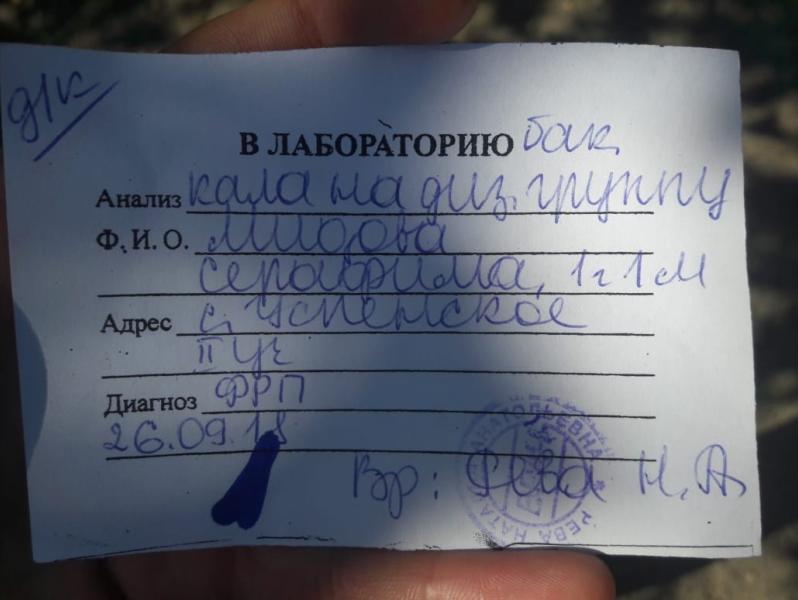 д/к
В ЛАБОРАТОРИЮ бак.
Анализ кала на диз. группу
Ф. И. О. Мидова
Серафима, 1 г 1 м
Адрес с. Успенское
II уч
Диагноз ФРП
26.09.18
Вр: Рева Н. А.
РЕВА НАТА АНАТОЛЬЕВНА